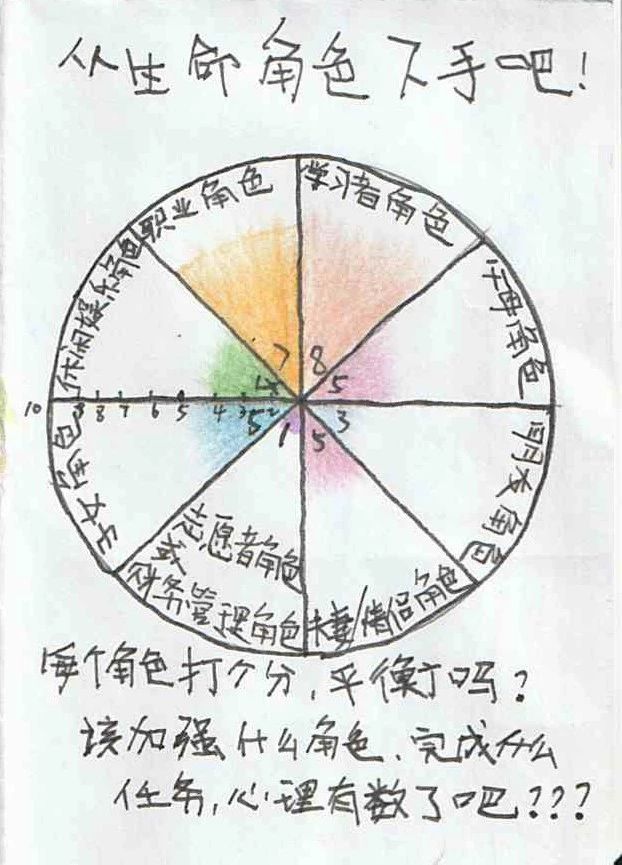 从生命角色下手吧!
职业角色
学习者角色
休闲娱乐角色
父母角色
7
8
5
10
9
8
7
6
5
4
3
2
子女角色
5
1
5
3
朋友角色
志愿者角色
财务管理角色
夫妻/情侣角色
每个角色打个分,平衡了吗?
该加强什么角色、完成什么
任务,心理有数了吧???